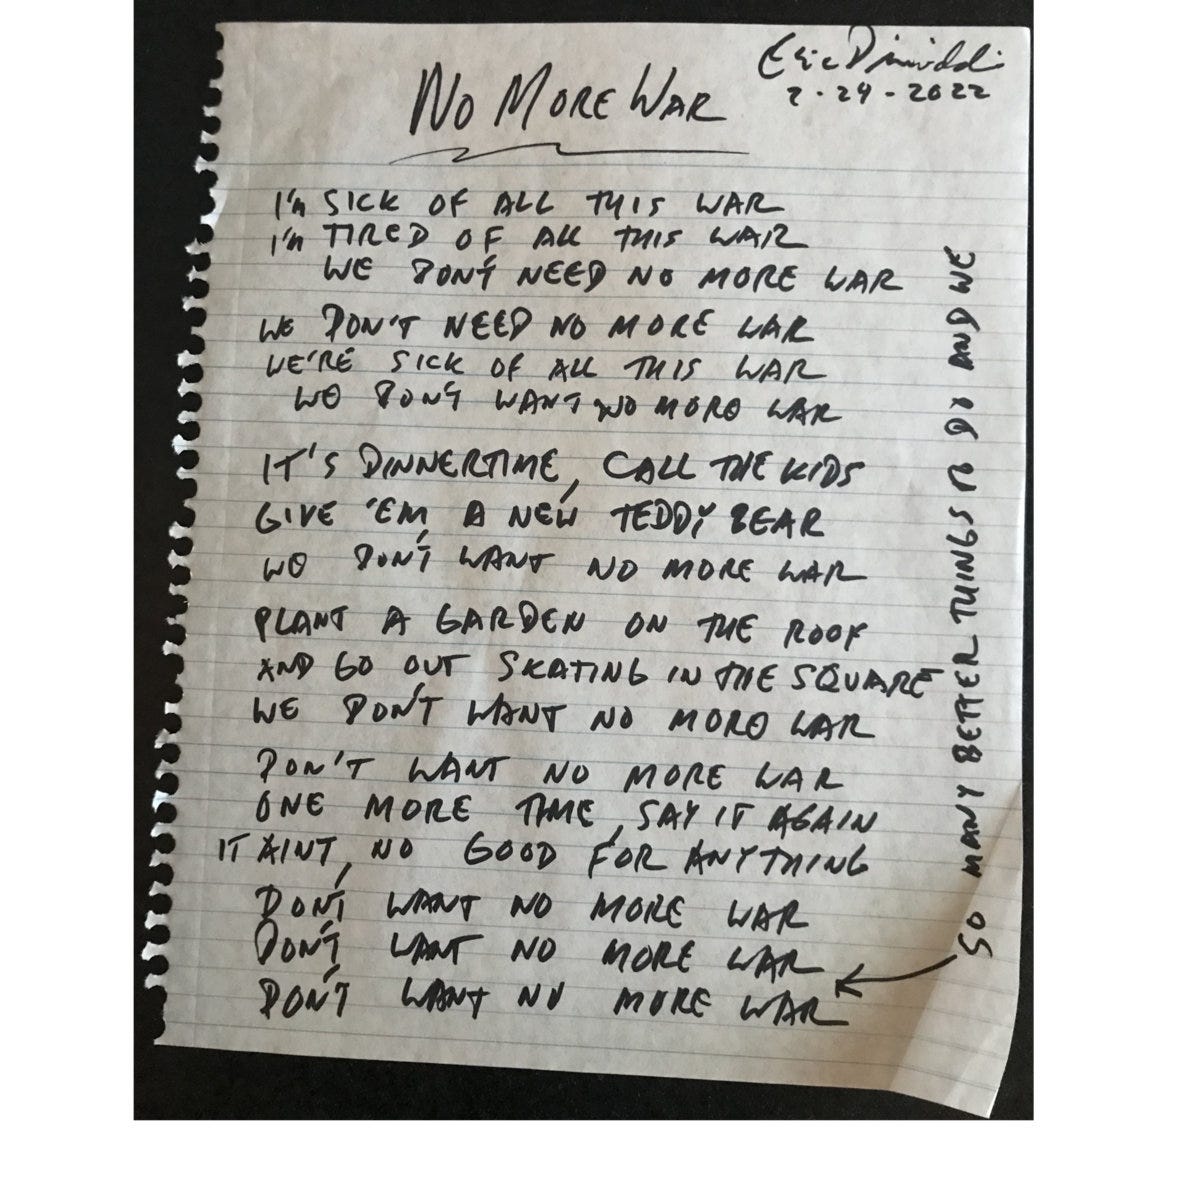 Eric
2-24-2022
NO MORE WAR
I'M SICK OF ALL THIS WAR
I'M TIRED OF ALL THIS WAR
WE DON'T NEED NO MORE WAR
WE DON'T NEED NO MORE WAR
WE'RE SICK OF ALL THIS WAR
WE DON'T WANT NO MORE WAR
IT'S DINNERTIME, CALL THE KIDS
GIVE 'EM A NEW TEDDY BEAR
WE DON'T WANT NO MORE WAR
PLANT A GARDEN ON THE ROOF
AND GO OUT SKATING IN THE SQUARE
WE DON'T WANT NO MORE WAR
DON'T WANT NO MORE WAR
ONE MORE TIME, SAY IT AGAIN
IT AIN'T NO GOOD FOR ANYTHING
DON'T WANT NO MORE WAR
DON'T WANT NO MORE WAR
SO MANY BETTER THINGS TO DO AND WE
DON'T WANT NO MORE WAR